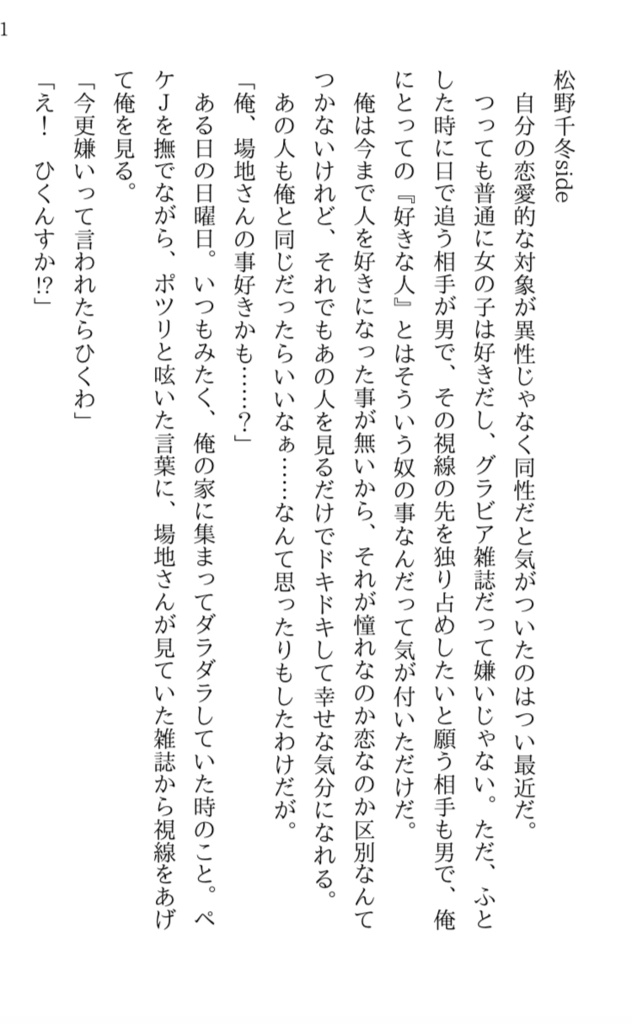 1
松野千冬side
　自分の恋愛的な対象が異性じゃなく同性だと気がついたのはつい最近だ。
　つっても普通に女の子は好きだし、グラビア雑誌だって嫌いじゃない。ただ、ふと
した時に目で追う相手が男で、その視線の先を独り占めしたいと願う相手も男で、俺
にとっての『好きな人』とはそういう奴の事なんだって気が付いただけだ。
　俺は今まで人を好きになった事が無いから、それが憧れなのか恋なのか区別なんて
つかないけれど、それでもあの人を見るだけでドキドキして幸せな気分になれる。
　あの人も俺と同じだったらいいなぁ……なんて思ったりもしたわけだが。
「俺、場地さんの事好きかも……？」
　ある日の日曜日。いつもみたく、俺の家に集まってダラダラしていた時のこと。ペ
ケJを撫でながら、ポツリと呟いた言葉に、場地さんが見ていた雑誌から視線をあげ
て俺を見る。
「今更嫌いって言われたらひくわ」
「え！　ひくんすか!?」